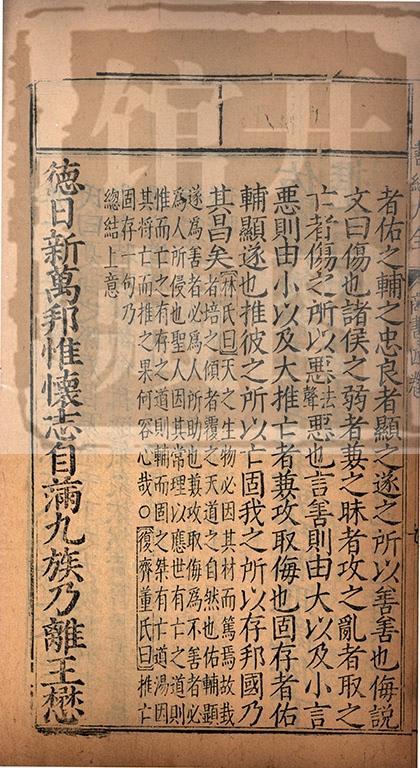 者佑之輔之忠良者顯之遂之所以善善也侮說
文曰傷也諸侯之弱者兼之昧者攻之亂者取之
亡者傷之所以惡去聲惡也言善則由大以及小言
惡則由小以及大推亡者兼攻取侮也固存者佑
輔顯遂也推彼之所以亡固我之所以存邦國乃
其昌矣林氏曰天之生物必因其材而篤焉故栽
者培之傾者覆之天道之自然也佑輔顯
遂為善者必為人所助也兼攻取侮為不善者必
為人所侵也聖人因其常理以應世有亡之道則
惟而亡之有存之道則輔而固之桀有亡道湯因
其將亡而推之果何容心哉○復齊董氏曰推亡
固存一句乃
總結上意
德日新萬邦惟懷志自滿九族乃離王懋